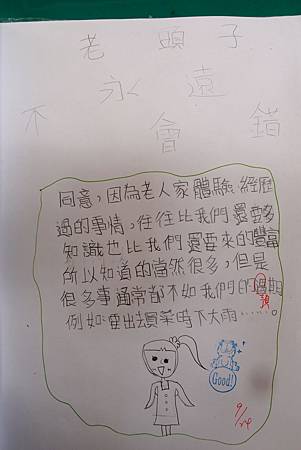 老頭子
永遠
不會錯
同意,因為老人家體驗、經歷
過的事情,往往比我們還要多
知識也比我們還要來的豐富
所以知道的當然很多,但是
很多事通常都不如我們的預期
例如:要出去買菜時下大雨……。
Good!
9/24